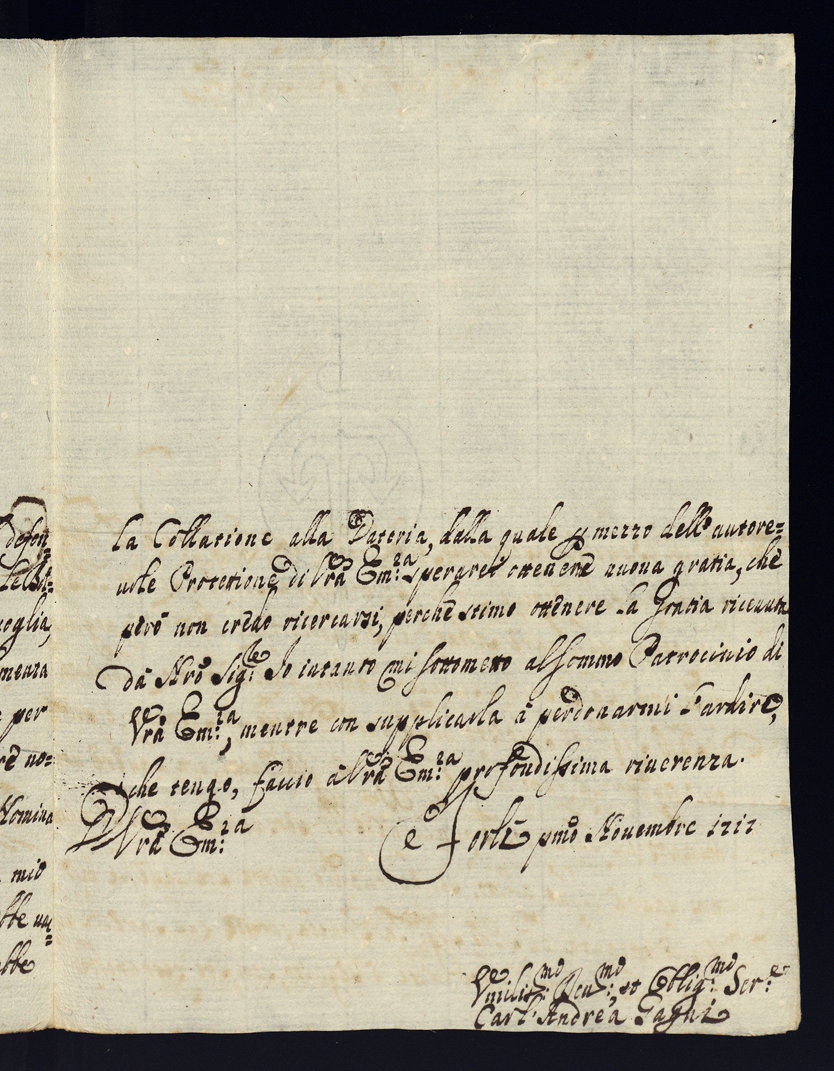 defen=
coglia,
menza
e per
re no=
Nomina
mio
la Collatione alla Dateria, dalla quale p mezzo dell'autore=
uole Protetione di Vrã Em:za sperarei ottenere nuoua gratia, che
però non credo ricercarsi, perche stimo ottenere la Gratia riceuuta
dà Nrõ Sig:re Io intanto mi sottometto al sommo Patrocinio di
Vrã Em:za, mentre con supplicarla à perdonarmi l'ardire,
che tengo, faccio à Vrã Em:za profondissima riuerenza.
D Vrã Em:za
Forlì pmõ Nouembre 1717
Vmiliss:mo Deu:mo, et Obblig:mo Ser:e
Carl' Andrea Gaghi